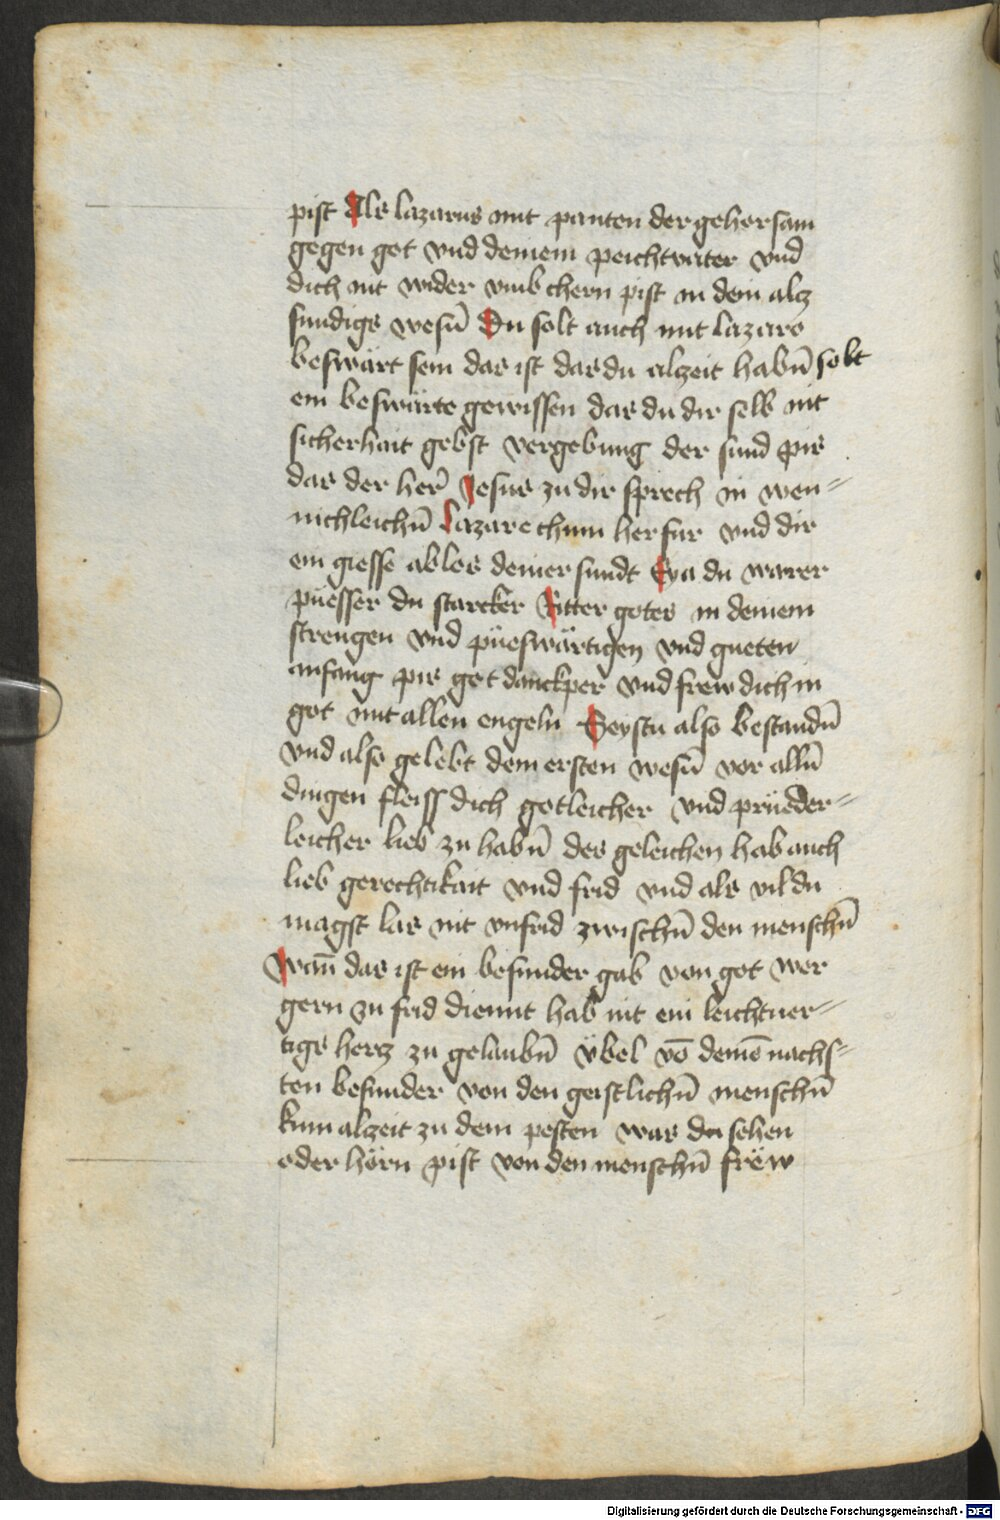 pist Als lazarus mit panten der gehorsam
gegen got vnd deinem peichtvater vnd
dich nit wider vmb chern pist in dein alz
sundigs wesn̄ Du solt auch mit lazaro
beswärt sein das ist das du alzeit habn̄ solt
ein beswärte gewissen das du dir selb nit
sicherhait gebst vergebung der sund pis
das der her̄ Jesus zu dir sprech in wen-
nichleichn̄ Lazare chum herfur vnd dir
ein giesse ablos deiner sundt Eya du warer
püesser du starcker Ritter gotes in deinem
strengen vnd püeswärtigen vnd gueten
anfang pis got danckper vnd frew dich in
got mit allen engeln Seystu also bestandn̄
vnd also gelebt dem ersten wesn̄ vor alln̄
dingen fleiss dich gotleicher vnd prüeder-
leicher lieb zu habn̄ des geleichen hab auch
lieb gerechtikait vnd frid vnd als vil du
magst las nit vnfrid zwischn̄ den menschn̄
Wan̄ das ist ein besunder gab von got wer
gern zu frid diennt hab nit ein leichtuer-
tigs hertz zu gelaubn̄ übel vō demē nachs-
ten besunder von den geistlichn̄ menschn̄
kum alzeit zu dem pesten was du sehen
oder hörn pist von den menschn̄ frëw
Digitalisierung gefördert durch die Deutsche Forschungsgemeinschaft - DFG